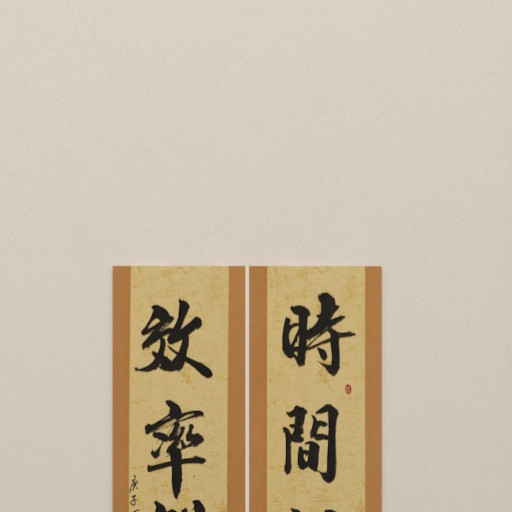 時間
效率
庚子